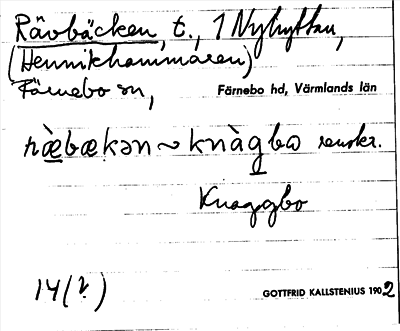 Rävbäcken, t., 1 Nyhyttan,
(Hennikhammaren)
Färnebo sn,
Färnebo hd, Värmlands län
næ̀bækən ~ knàgbo
Knaggbo
14(?)
GOTTFRID KALLSTENIUS 1902